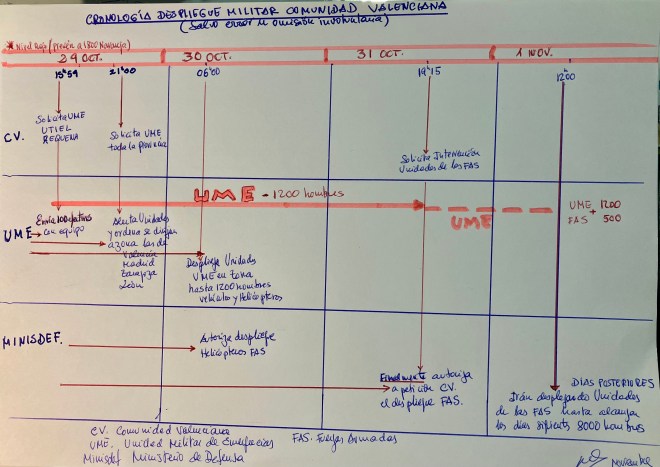 CRONOLOGÍA DESPLIEGUE MILITAR COMUNIDAD VALENCIANA
(Salvo error u omisión involuntaria)
* Nivel rojo (Previsión a 1800 Naranja)
29 OCT. 30 OCT. 31 OCT. 1 NOV.
15'59 21'00 06'00 19'15 12'00
CV.
Solicita UME
UTIEL
REQUENA
Solicita UME
toda la provincia
Solicita Intervención
Unidades de las FAS
UME - 1200 hombres
UME
UME
Envía 100 efectivos
con equipo
Alerta Unidades
y ordena se dirijan
a zona las de
Valencia
Madrid
Zaragoza
León
Despliega Unidades
UME en zona
hasta 1200 hombres
vehículos y Helicópteros
UME 1200
+
FAS 500
MINISDEF.
Autoriza despliegue
Helicópteros FAS
Finalmente autoriza
a petición CV.
el despliegue FAS.
DÍAS POSTERIORES
Irán desplegando Unidades
de las FAS hasta alcanzar
los días siguientes 8000 hombres
CV. Comunidad Valenciana
UME. Unidad Militar de Emergencias
FAS. Fuerzas Armadas
Minisdef Ministerio de Defensa
Noviembre